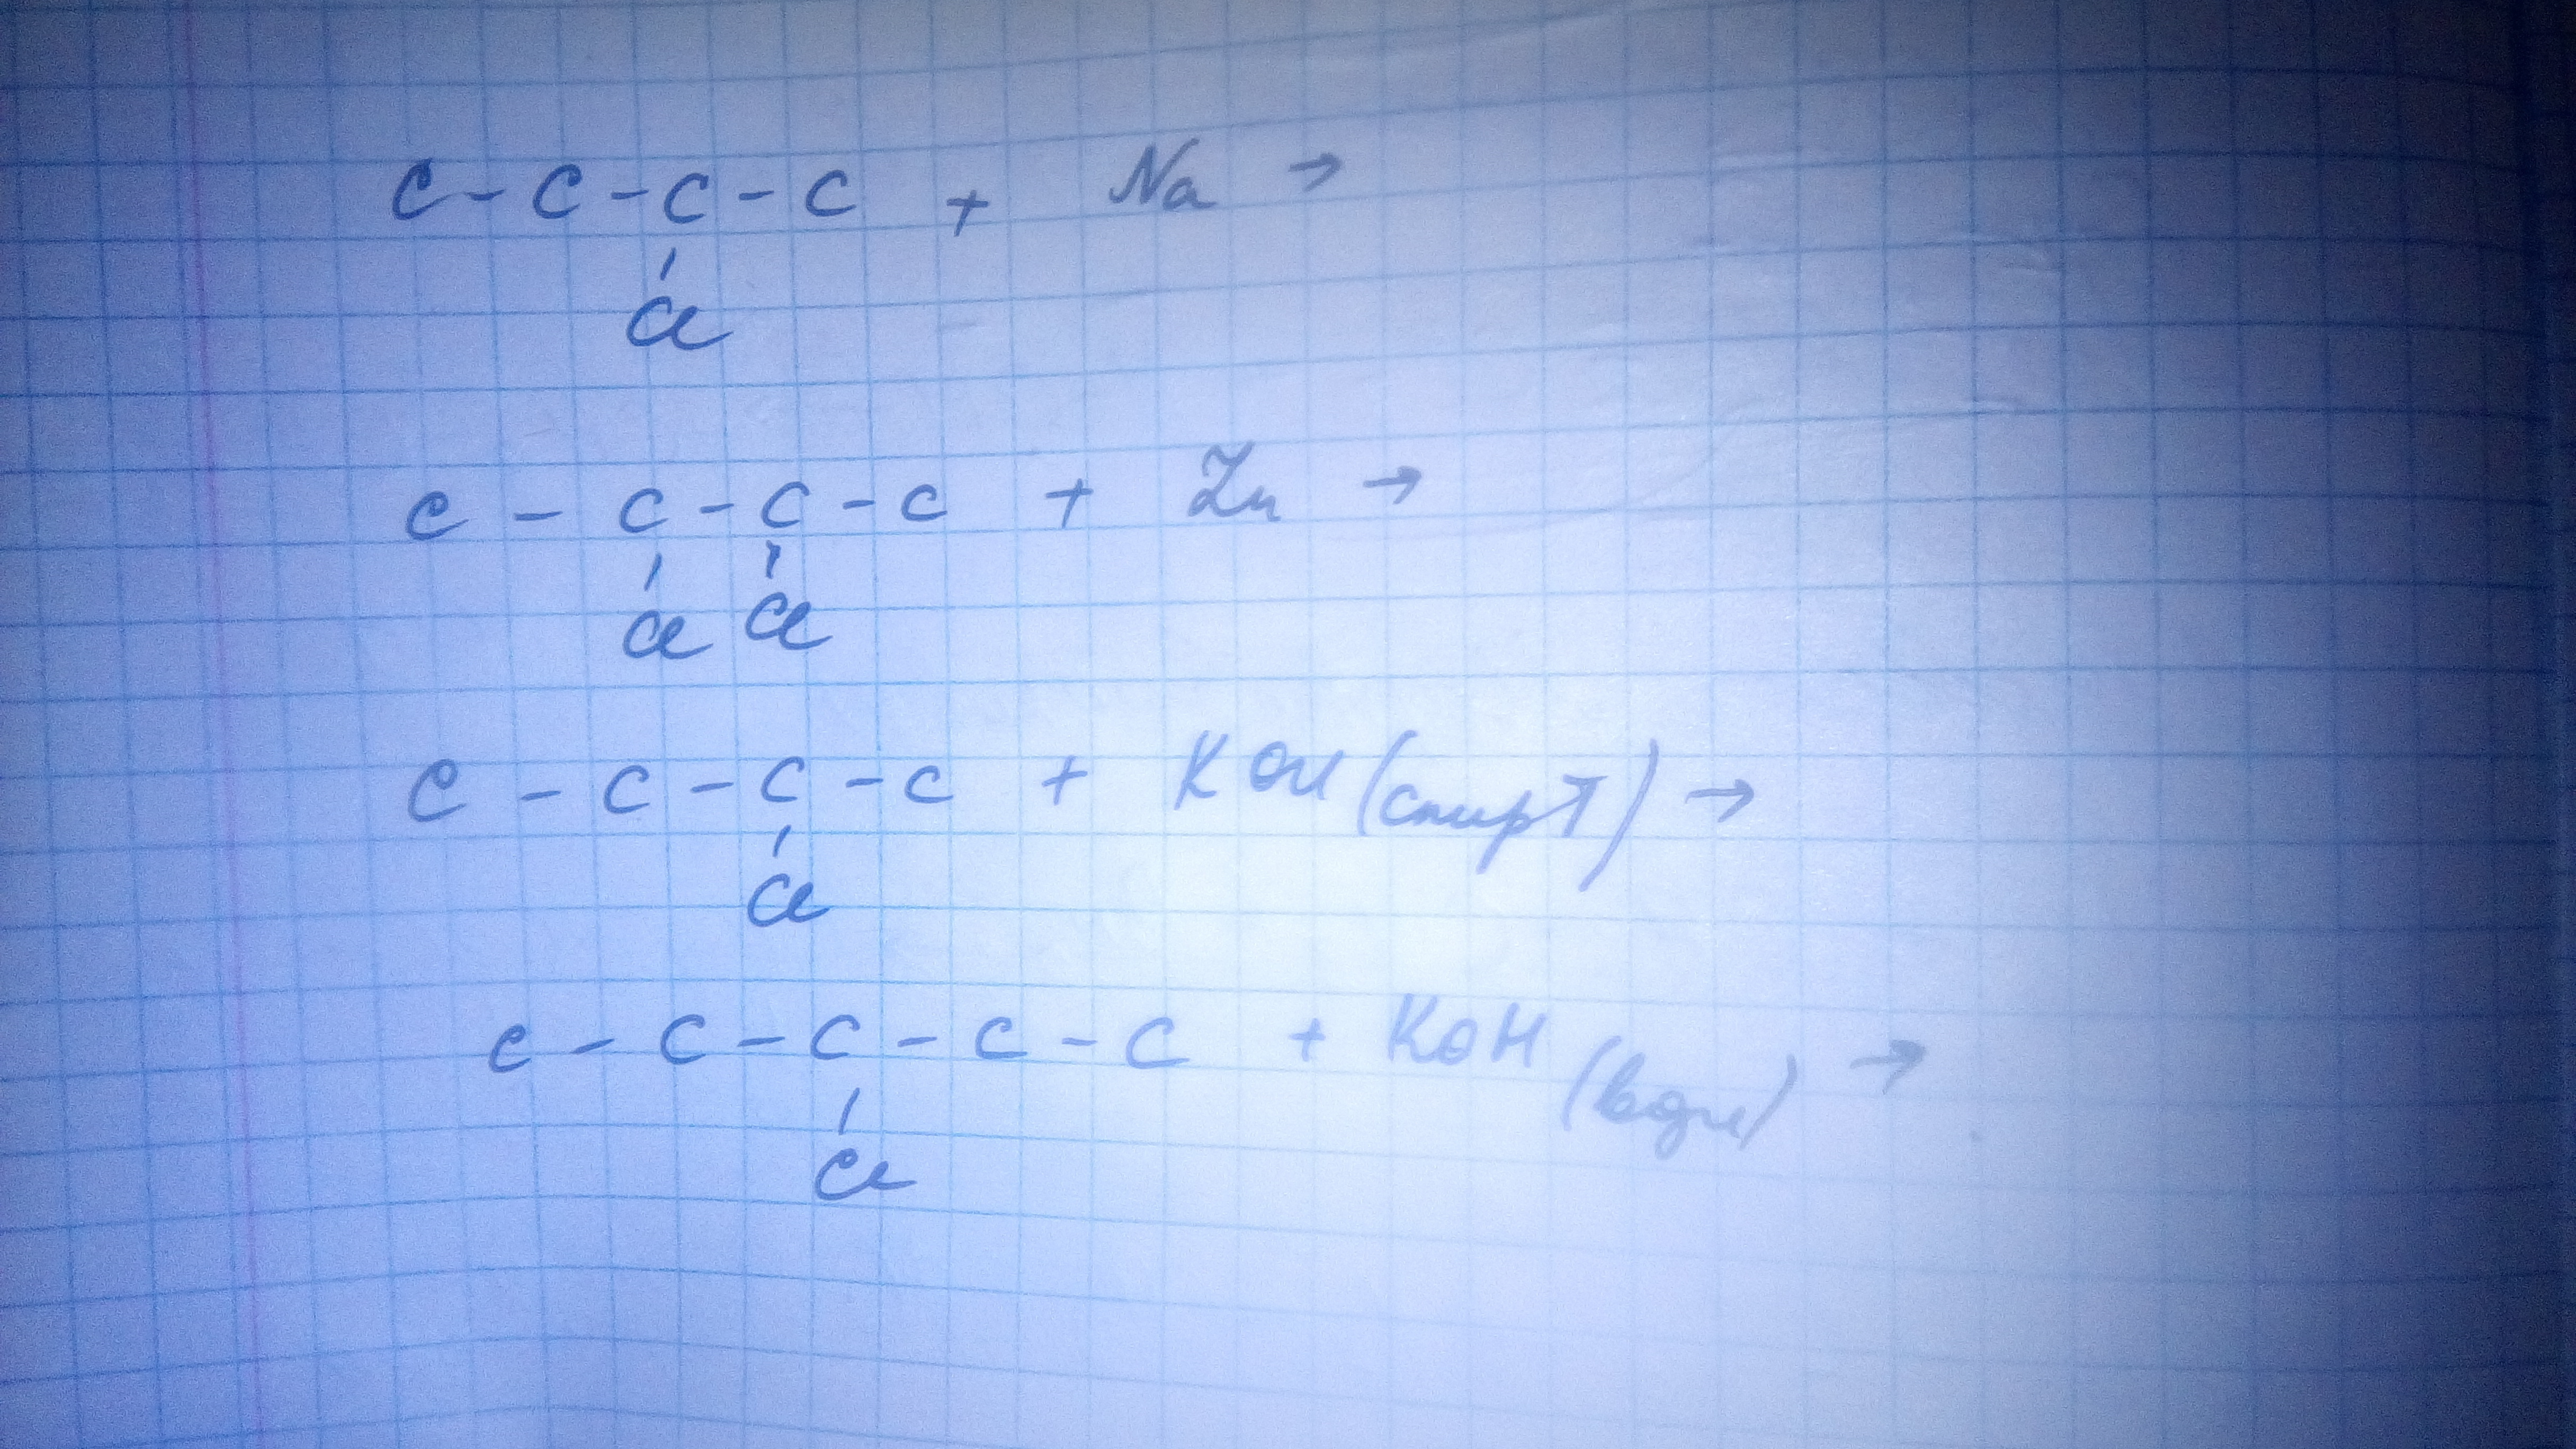 C - C - C - C + Na →
Cl
C - C - C - C + Zn →
Cl Cl
C - C - C - C + KOH (спирт) →
Cl
C - C - C - C - C + KOH (водн) →
Cl